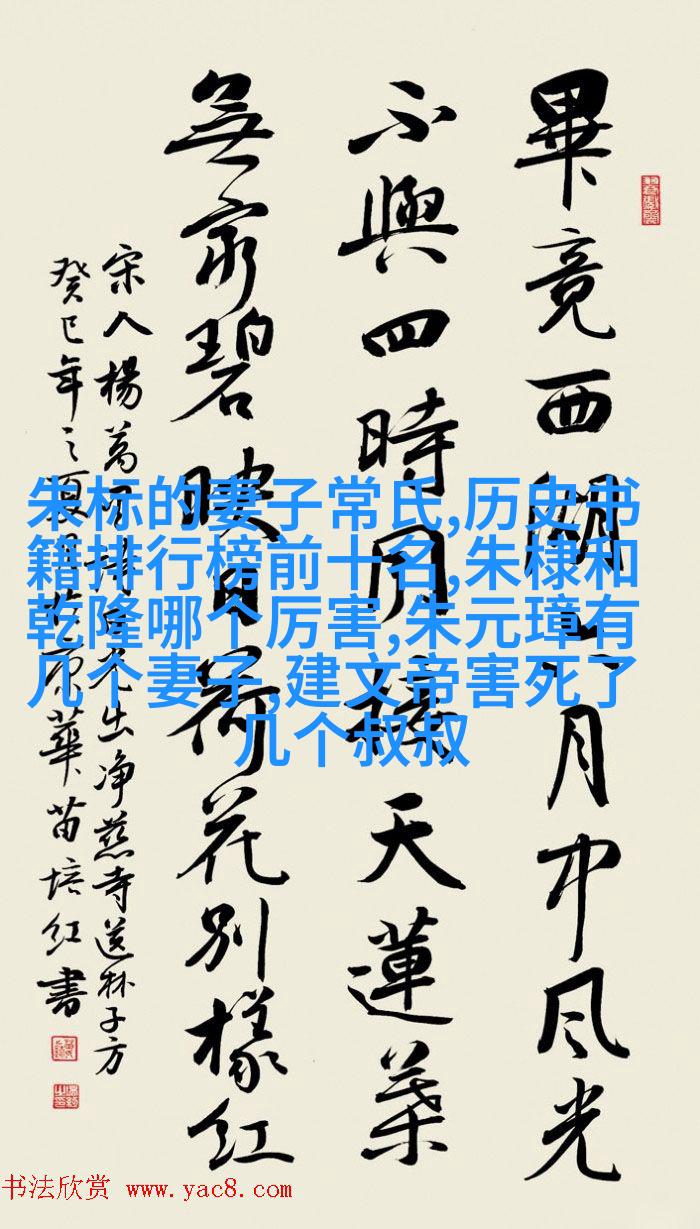 畢竟西湖六月中风光
不與四時同接天蓮葉
無窮碧映日荷花别樣红
宋人楊萬里詩曉出净慈寺送林子方
癸巳年之夏月 華苗培红書
朱标的妻子常氏,历史书
籍排行榜前十名,朱棣和
乾隆哪个厉害,朱元璋有
几个妻子,建文帝害死了
几个叔叔
书法欣赏 www.yac8.com